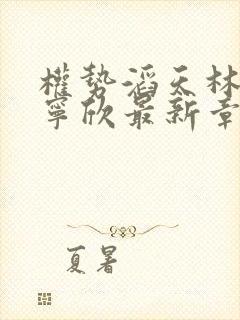 權勢滔天林
寧欣最新章
夏暑